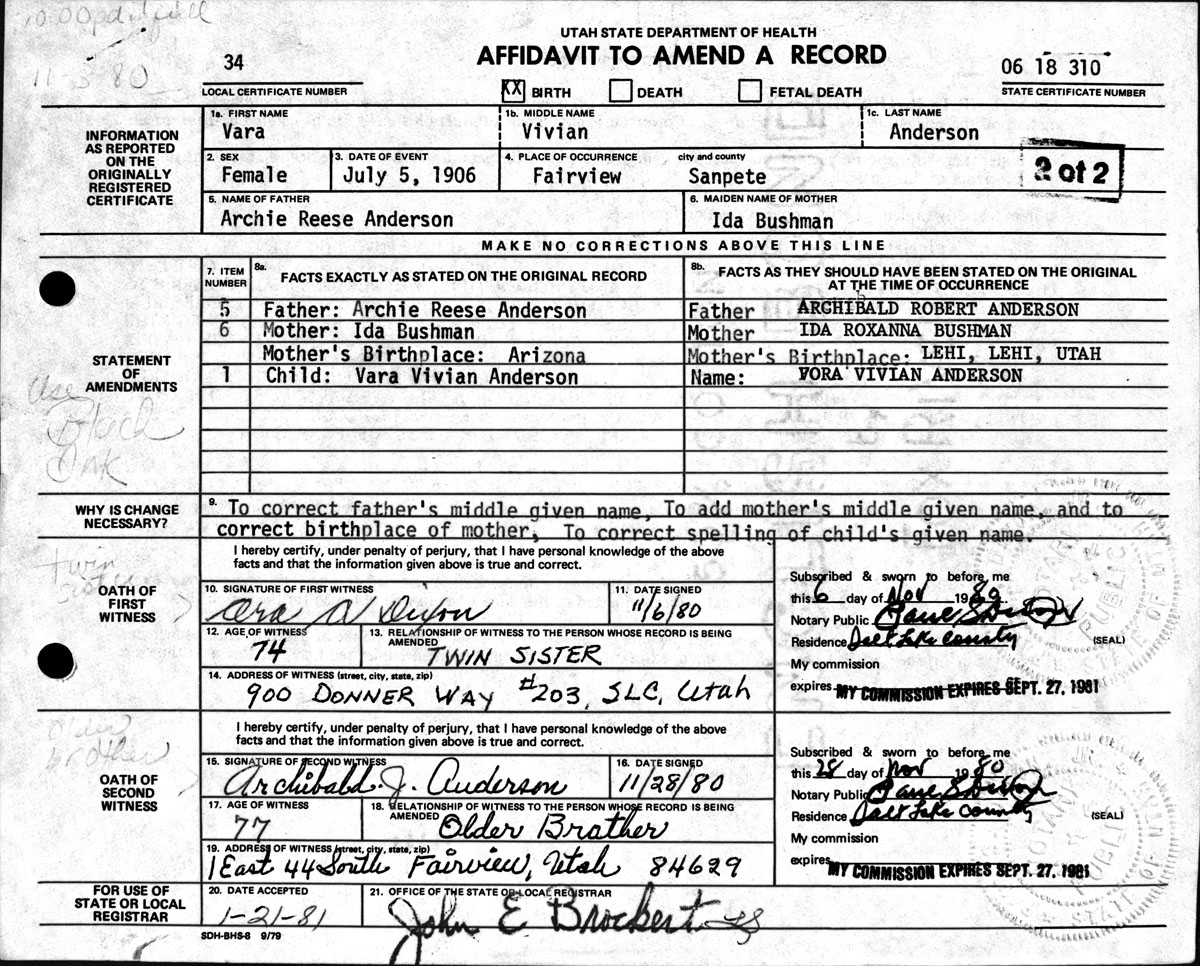 10.00 pd in full
11-3-80
UTAH STATE DEPARTMENT OF HEALTH
AFFIDAVIT TO AMEND A RECORD
34
LOCAL CERTIFICATE NUMBER
XX BIRTH DEATH FETAL DEATH
06 18 310
STATE CERTIFICATE NUMBER
INFORMATION AS REPORTED ON THE ORIGINALLY REGISTERED CERTIFICATE
1a. FIRST NAME 1b. MIDDLE NAME 1c. LAST NAME
Vara Vivian Anderson
2. SEX 3. DATE OF EVENT 4. PLACE OF OCCURRENCE city and county
Female July 5, 1906 Fairview Sanpete
2 of 2
5. NAME OF FATHER 6. MAIDEN NAME OF MOTHER
Archie Reese Anderson Ida Bushman
MAKE NO CORRECTIONS ABOVE THIS LINE
STATEMENT OF AMENDMENTS
7. ITEM NUMBER 8a. FACTS EXACTLY AS STATED ON THE ORIGINAL RECORD 8b. FACTS AS THEY SHOULD HAVE BEEN STATED ON THE ORIGINAL AT THE TIME OF OCCURRENCE
5 Father: Archie Reese Anderson Father ARCHIBALD ROBERT ANDERSON
6 Mother: Ida Bushman Mother IDA ROXANNA BUSHMAN
Mother's Birthplace: Arizona Mother's Birthplace: LEHI, LEHI, UTAH
1 Child: Vara Vivian Anderson Name: VORA VIVIAN ANDERSON
Use
Black
Ink
WHY IS CHANGE NECESSARY?
9. To correct father's middle given name, To add mother's middle given name, and to
correct birthplace of mother, To correct spelling of child's given name.
twin
sister
OATH OF FIRST WITNESS
I hereby certify, under penalty of perjury, that I have personal knowledge of the above
facts and that the information given above is true and correct.
10. SIGNATURE OF FIRST WITNESS 11. DATE SIGNED
Ora A Dixon 11/6/80
12. AGE OF WITNESS 13. RELATIONSHIP OF WITNESS TO THE PERSON WHOSE RECORD IS BEING AMENDED
74 TWIN SISTER
14. ADDRESS OF WITNESS (street, city, state, zip)
900 DONNER WAY #203, SLC, Utah
Subscribed & sworn to before me
this 6 day of Nov 1980
Notary Public
Residence Salt Lake County (SEAL)
My commission
expires MY COMMISSION EXPIRES SEPT. 27, 1981
Older
brother
OATH OF SECOND WITNESS
I hereby certify, under penalty of perjury, that I have personal knowledge of the above
facts and that the information given above is true and correct.
15. SIGNATURE OF SECOND WITNESS 16. DATE SIGNED
Archibald J. Anderson 11/28/80
17. AGE OF WITNESS 18. RELATIONSHIP OF WITNESS TO THE PERSON WHOSE RECORD IS BEING AMENDED
77 Older Brother
19. ADDRESS OF WITNESS (street, city, state, zip)
1 East 44 South Fairview, Utah 84629
Subscribed & sworn to before me
this 28 day of Nov 1980
Notary Public
Residence Salt Lake County (SEAL)
My commission
expires MY COMMISSION EXPIRES SEPT. 27, 1981
FOR USE OF STATE OR LOCAL REGISTRAR
20. DATE ACCEPTED 21. OFFICE OF THE STATE OR LOCAL REGISTRAR
1-21-81 John E Brockert
SDH-BHS-8 9/79